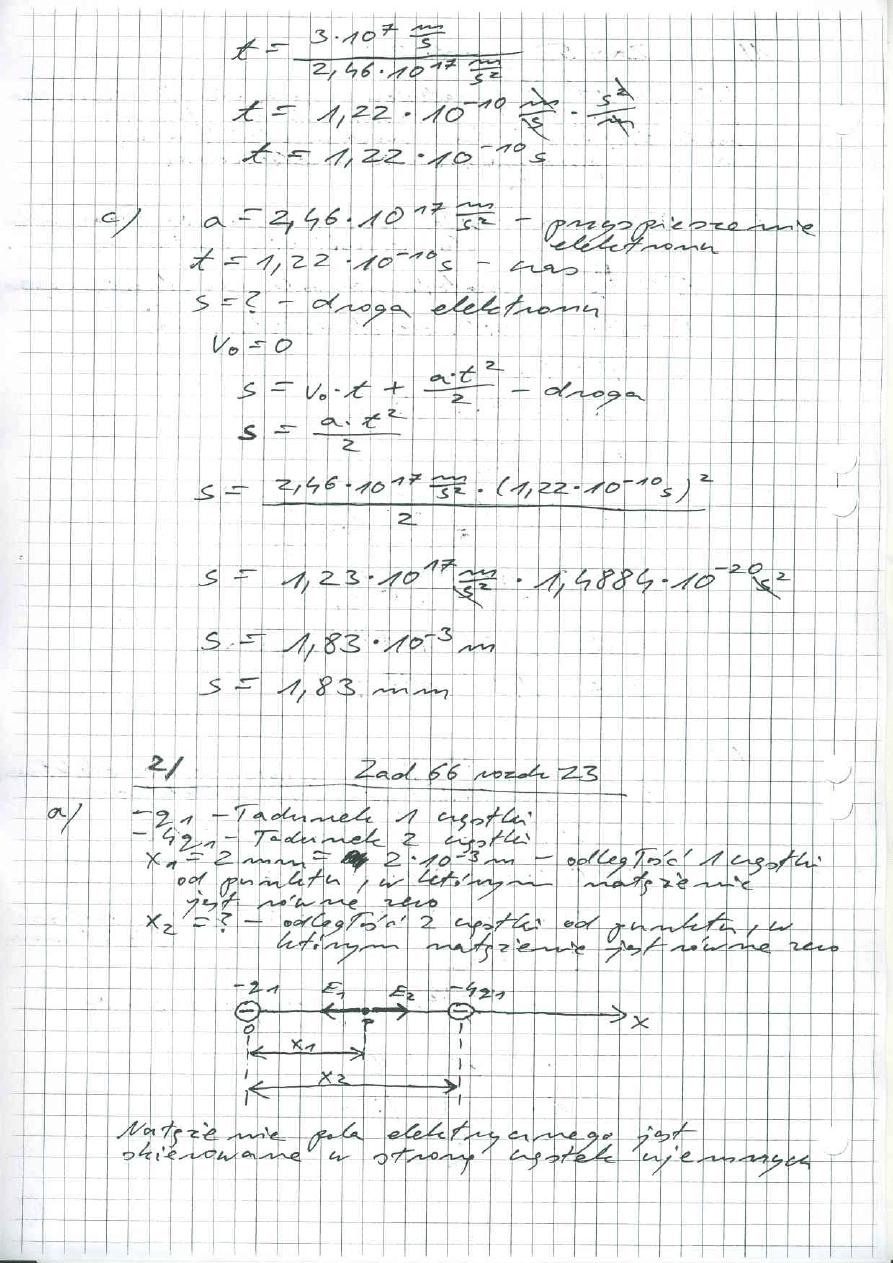 t = 3·10⁷ m/s / 2,46·10¹⁷ m/s²
t = 1,22·10⁻¹⁰ m/s · s²/m
t = 1,22·10⁻¹⁰ s
c) a = 2,46·10¹⁷ m/s² – przyspieszenie
elektronu
t = 1,22·10⁻¹⁰ s – czas
s = ? – droga elektronu
V₀ = 0
s = V₀·t + a·t²/2 – droga
s = a·t²/2
s = 2,46·10¹⁷ m/s² · (1,22·10⁻¹⁰ s)² / 2
s = 1,23·10¹⁷ m/s² · 1,4884·10⁻²⁰ s²
s = 1,83·10⁻³ m
s = 1,83 mm
2/ Zad 66 rozdz 23
a) –q₁ – ładunek 1 cząstki
–4q₁ – ładunek 2 cząstki
x₁ = 2 mm = 2·10⁻³ m – odległość 1 cząstki
od punktu, w którym natężenie
jest równe zero
x₂ = ? – odległość 2 cząstki od punktu, w
którym natężenie jest równe zero
–q₁ E₁ E₂ –4q₁
0 P x
x₁
x₂
Natężenie pola elektrycznego jest
skierowane w stronę cząstek ujemnych